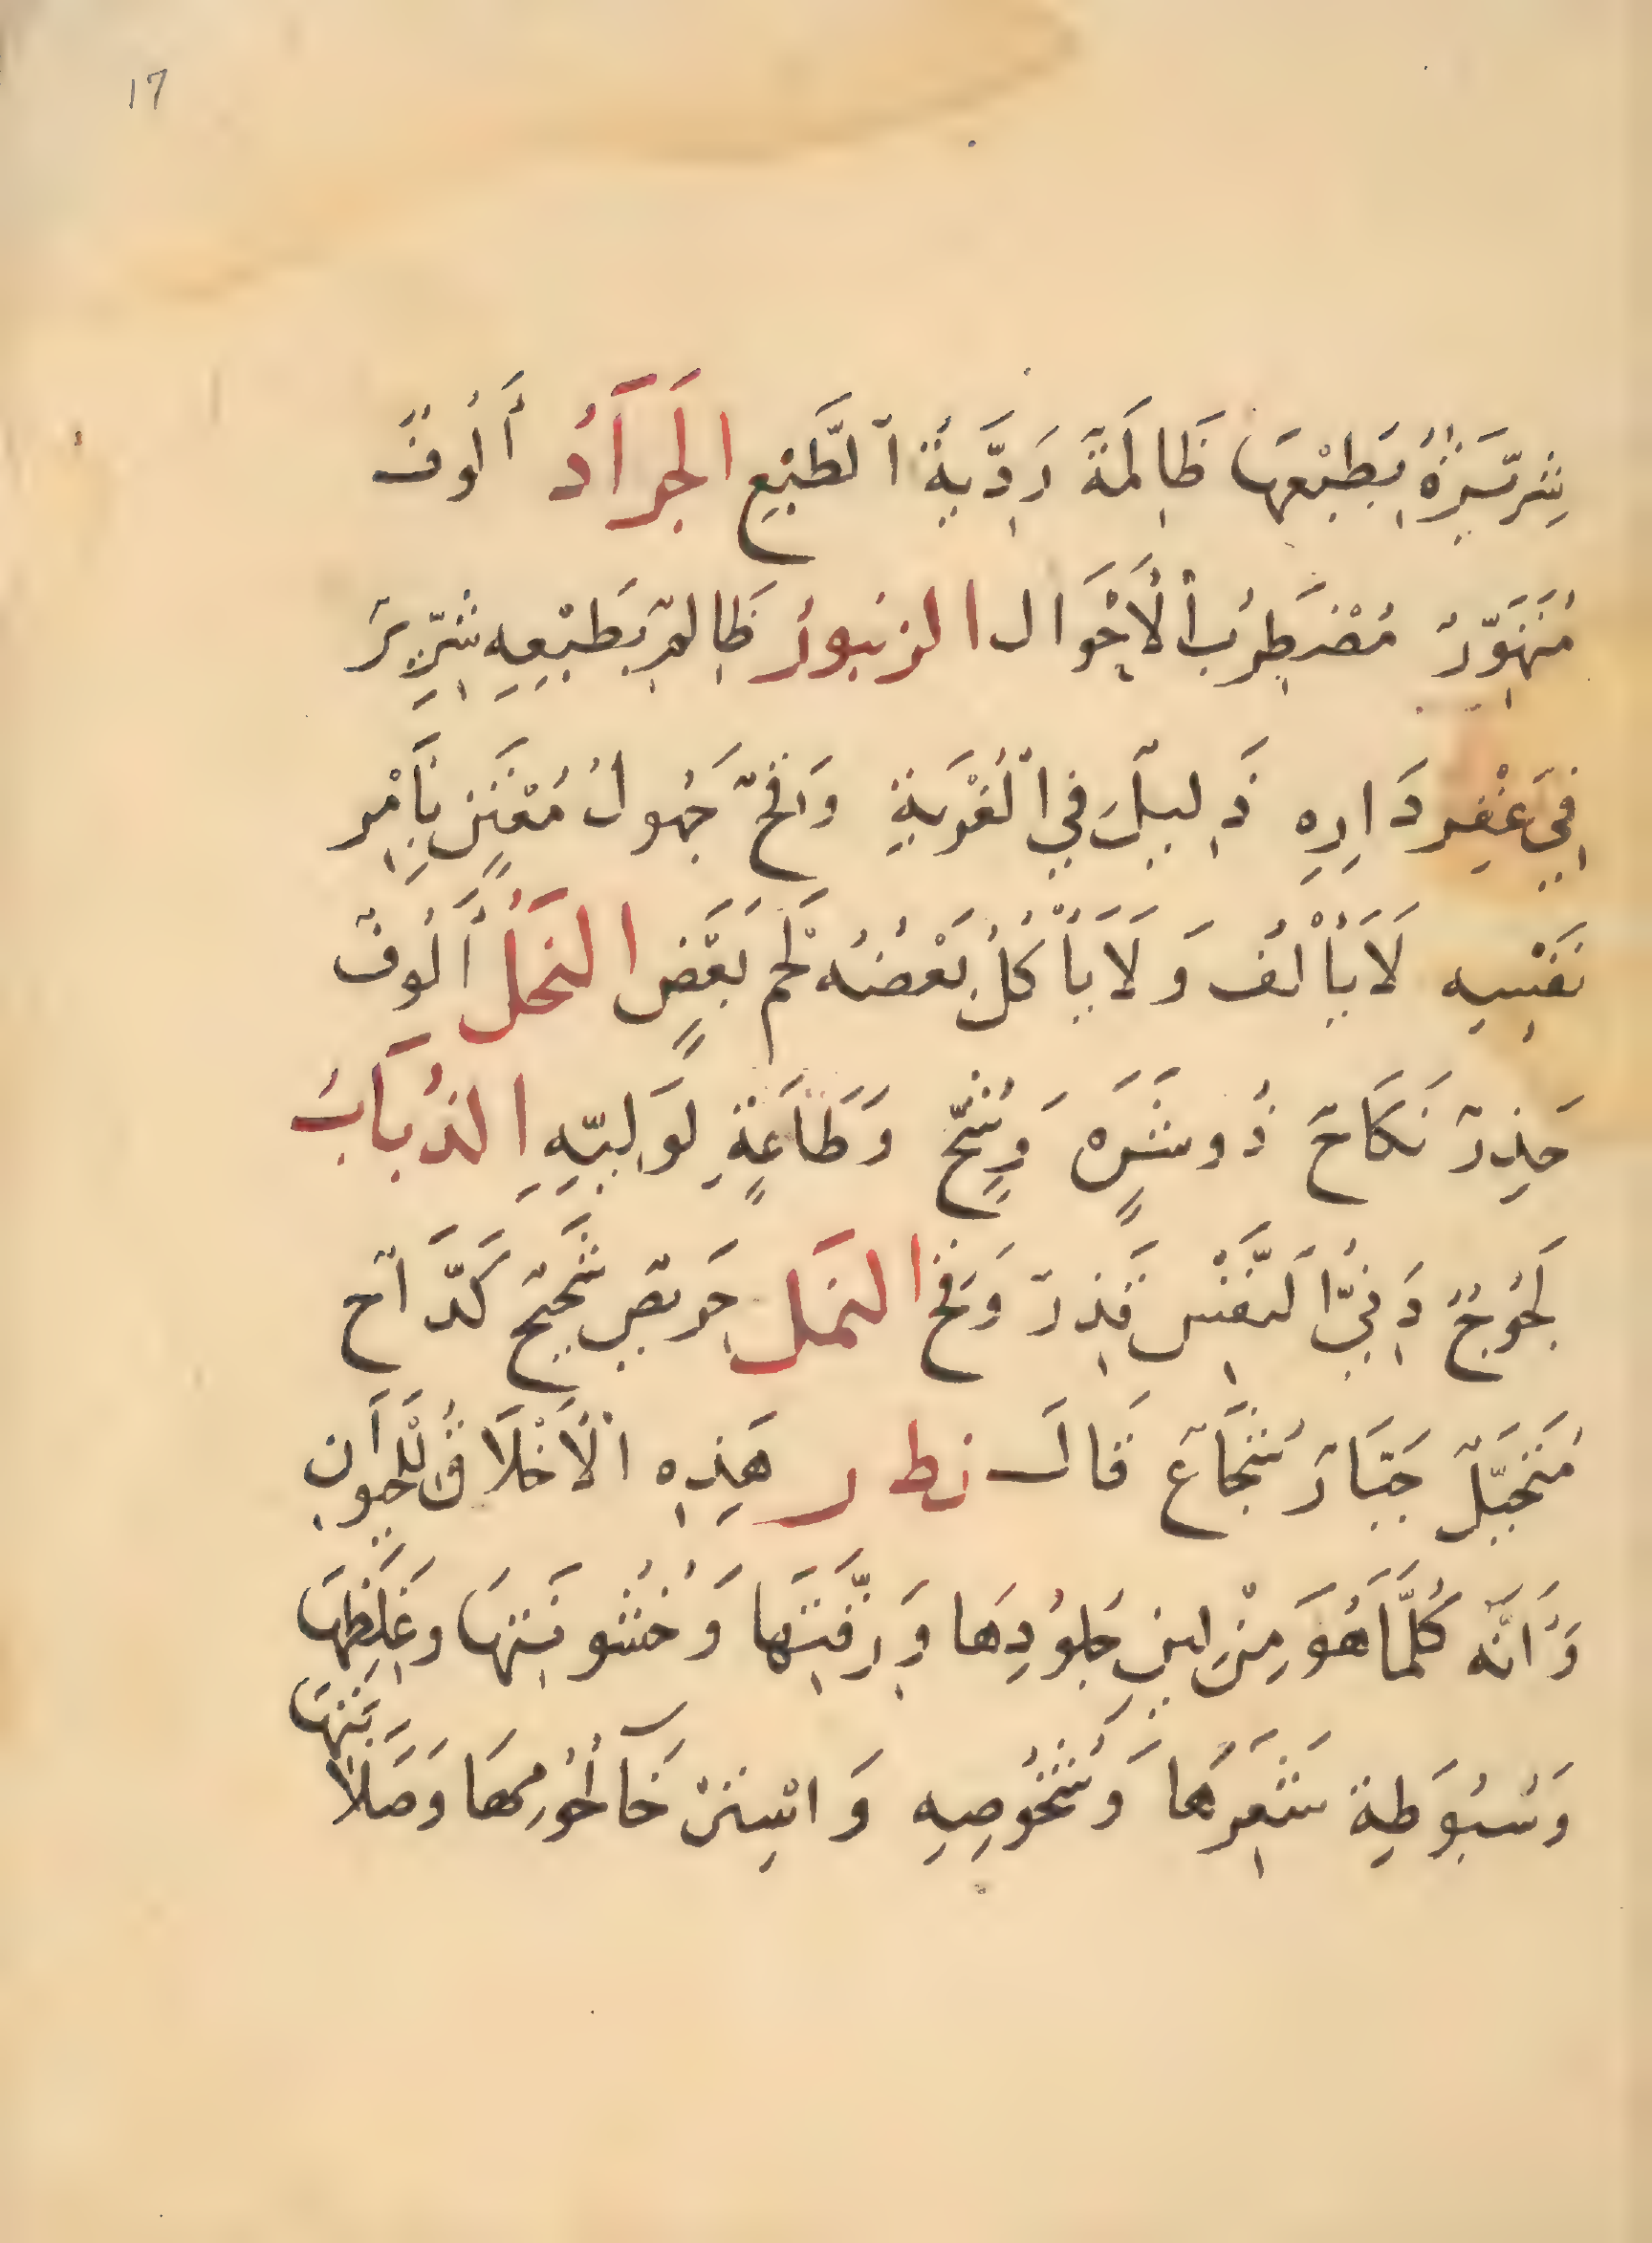 17
شِرِّيرَةٌ بِطَبْعِهَا ظَالِمَةٌ رَدِيَّةُ الطَّبْعِ الجَرَادُ أَلُوفٌ
مُتَهَوِّرٌ مُضْطَرِبُ الْأَحْوَالِ الزنبورُ ظَالِمٌ بِطَبْعِهِ شِرِّيرٌ
فِي عَقْرِ دَارِهِ ذَلِيلٌ فِي الْغُرْبَةِ وَقِحٌ جَهُولٌ مُعْتَنٍ بِأَمْرِ
نَفْسِهِ لَا يَأْلَفُ وَلَا يَأْكُلُ بَعْضُهُ لَحْمَ بَعْضٍ النَحْلُ أَلُوفٌ
حَذِرٌ نَكَاحٌ ذُو شَرَهٍ وَشُحٍّ وَطَاعَةٍ لِوَلِيِّهِ الذُبَابُ
لَجُوجٌ دَنِيُّ النَّفْسِ قَذِرٌ وَقِحٌ النَمَل حَرِيصٌ شَحِيحٌ كَدَّاحٌ
مُتَحَيِّلٌ جَبَّارٌ شُجَاعٌ قَالَ نطر هَذِهِ الْأَخْلَاقُ لِلْحَيَوَانِ
وَأَنَّهُ كُلَّمَا هُوَ مِنْ لِينِ جُلُودِهَا وَرِقَّتِهَا وَخُشُونَتِهَا وَغِلَظِهَا
وَسُبُوطَةِ شَعْرِهَا وَشُخُوصِهِ وَاسْتِرْخَاءِ لُحُومِهَا وَصَلَابَتِهَا